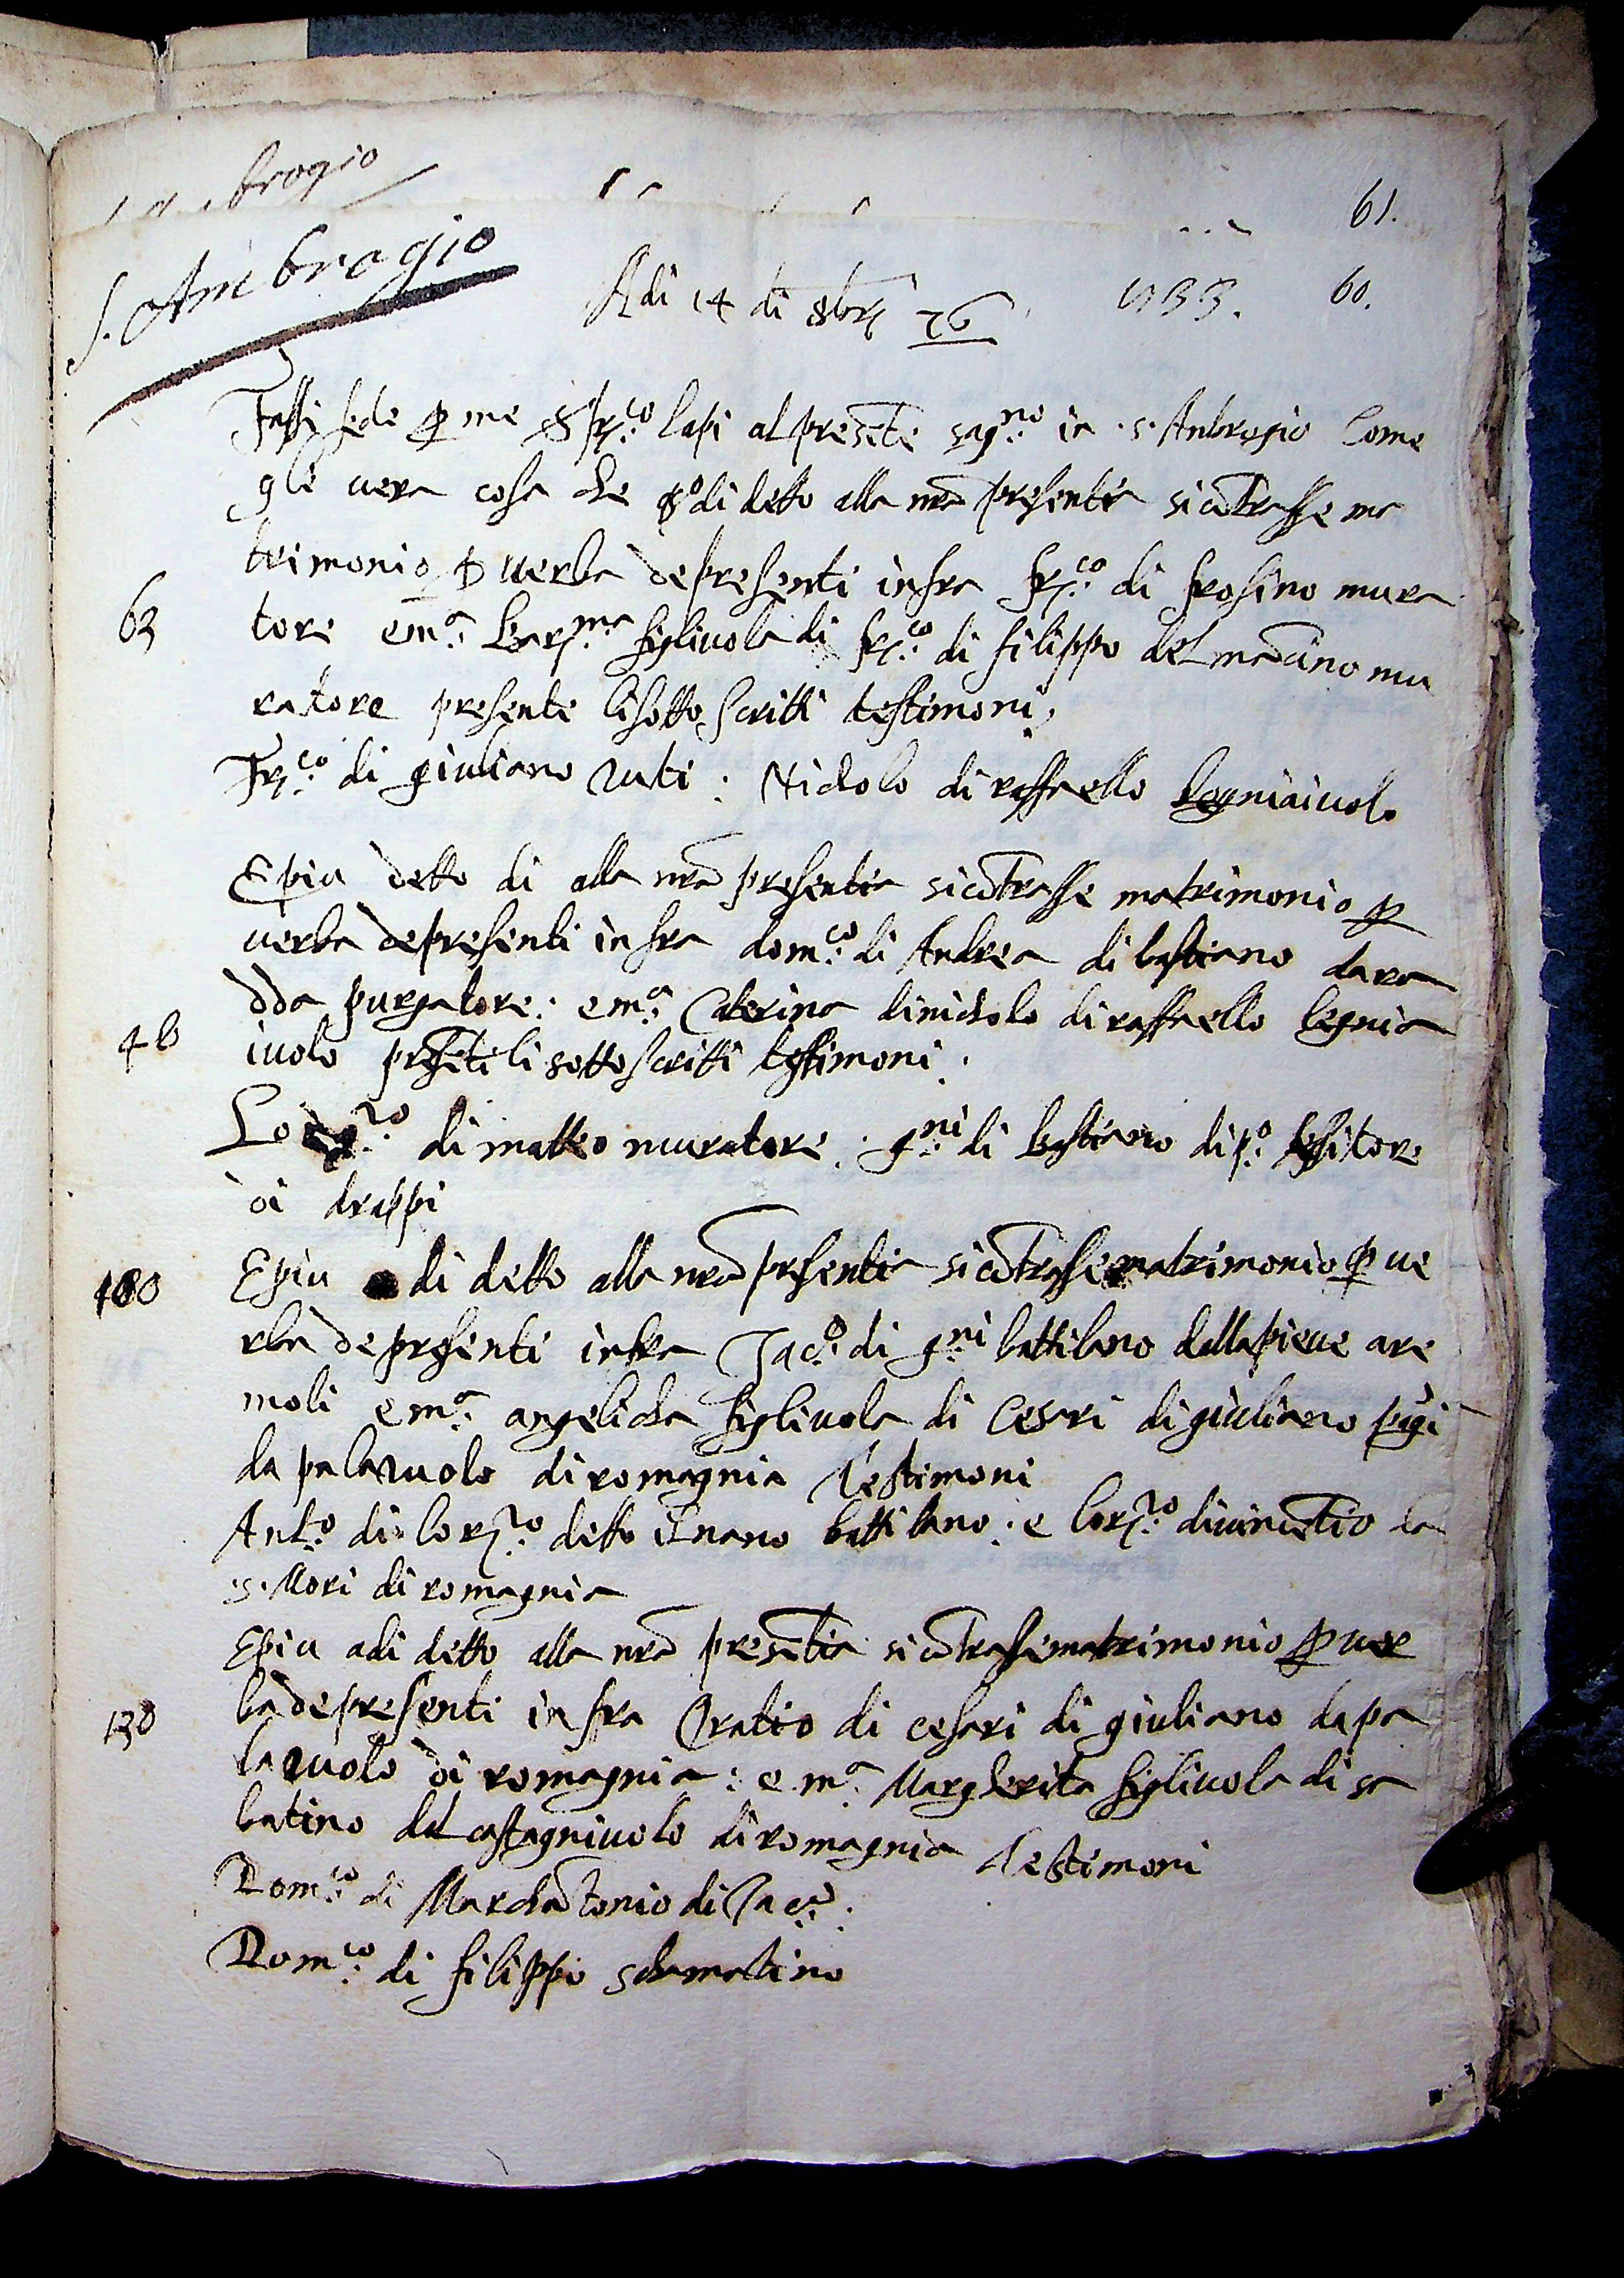 brogio
61.
S. Ambrogio
Adi 14 di 8bre 76 60.
Fassi fede p me S fr.co lapi al presēte sag.no in .s. Anbrogio Come
gle uera cosa che di detto alla nra presentia si cōtrasse ma
trimonio p uerba de presenti infra fr.co di frosino mura
63
tore e m.a figliuola di fr.co di filippo del mu
ratore presente li sotto scritti testimoni.
Fr.co di giuliano ruti : Nicholo di raffaello legniaiuolo
E piu detto di alla nra presentia si cōtrasse matrimonio p
uerba de presenti infra dom.co di Andrea di bastiano dara
dda purgatore : e m.a Caterina di nicholo di raffaello legnia
4b
iuolo presēte li sotto scritti testimoni.
Lo di matteo muratore . g.ni di bastiano di p.o tesitore
di drappi
E piu di detto alla nra presentia si cōtrasse matrimonio p ue
100
rba de presenti infra Jac.o di g.ni battilano dalla pieue a re
moli e m.a angelicha figliuola di Cesari di giuliano
da palazuolo di romagnia Testimoni
Ant.o di lor.zo detto il nano battilano : e lor.zo di uincētio da
.s. Mori di romagnia
E piu adi detto alla nra presētia si cōtrasse matrimonio p uer
ba de presenti infra Oratio di cesari di giuliano da pa
130
lazuolo di romagnia : e m.a Margherita figliuola di sa
batino dal castagniuolo di romagnia Testimoni
Dom.co di Marchātonio di Jac.o .
Dom.co di filippo schamatino